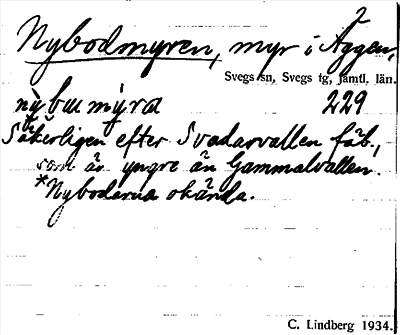 Nybodmyren, myr i Äggen,
Svegs sn, Svegs tg, Jämtl. län.
229
Säkerligen efter Svadarvallen fäb.,
som är yngre än Gammalvallen.
*Nybodarna okända.
C. Lindberg 1934.